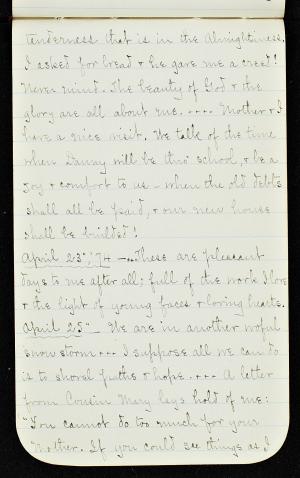 tenderness that is in the Almightiness.
I asked for bread & he gave me a creed!
Never mind. The beauty of God & the
glory are all about me. .... Mother & I
have a nice visit. We talk of the time
when Danny will be thro' school, & be a
joy & comfort to us – when the old debts
shall all be paid, & our new house
shall be builded!
April 23", '74 – ...These are pleasant
days to me after all; full of the work I love
& the light of young faces & loving hearts.
April 25" – We are in another woful
snow storm ... I suppose all we can do
is to shovel paths & hope. .... A letter
from Cousin Mary lays hold of me:
"You cannot do too much for your
Mother. If you could see things as I